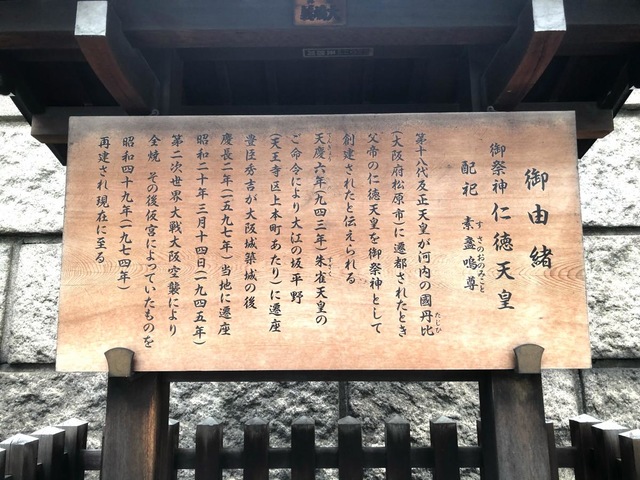 御由緒
御祭神 仁徳天皇
配祀 素盞嗚尊
すさのおのみこと
第十八代反正天皇が河内の國丹比
たじひ
(大阪府松原市)に遷都されたとき
父帝の仁徳天皇を御祭神として
創建されたと伝えられる
天慶六年(九四三年)朱雀天皇の
すざく
ご命令により大江の坂平野
(天王寺区上本町あたり)に遷座
豊臣秀吉が大阪城築城の後
慶長二年(一五九七年)当地に遷座
昭和二十年三月十四日(一九四五年)
第二次世界大戦大阪空襲により
全焼 その後仮宮によっていたものを
昭和四十九年(一九七四年)
再建され現在に至る